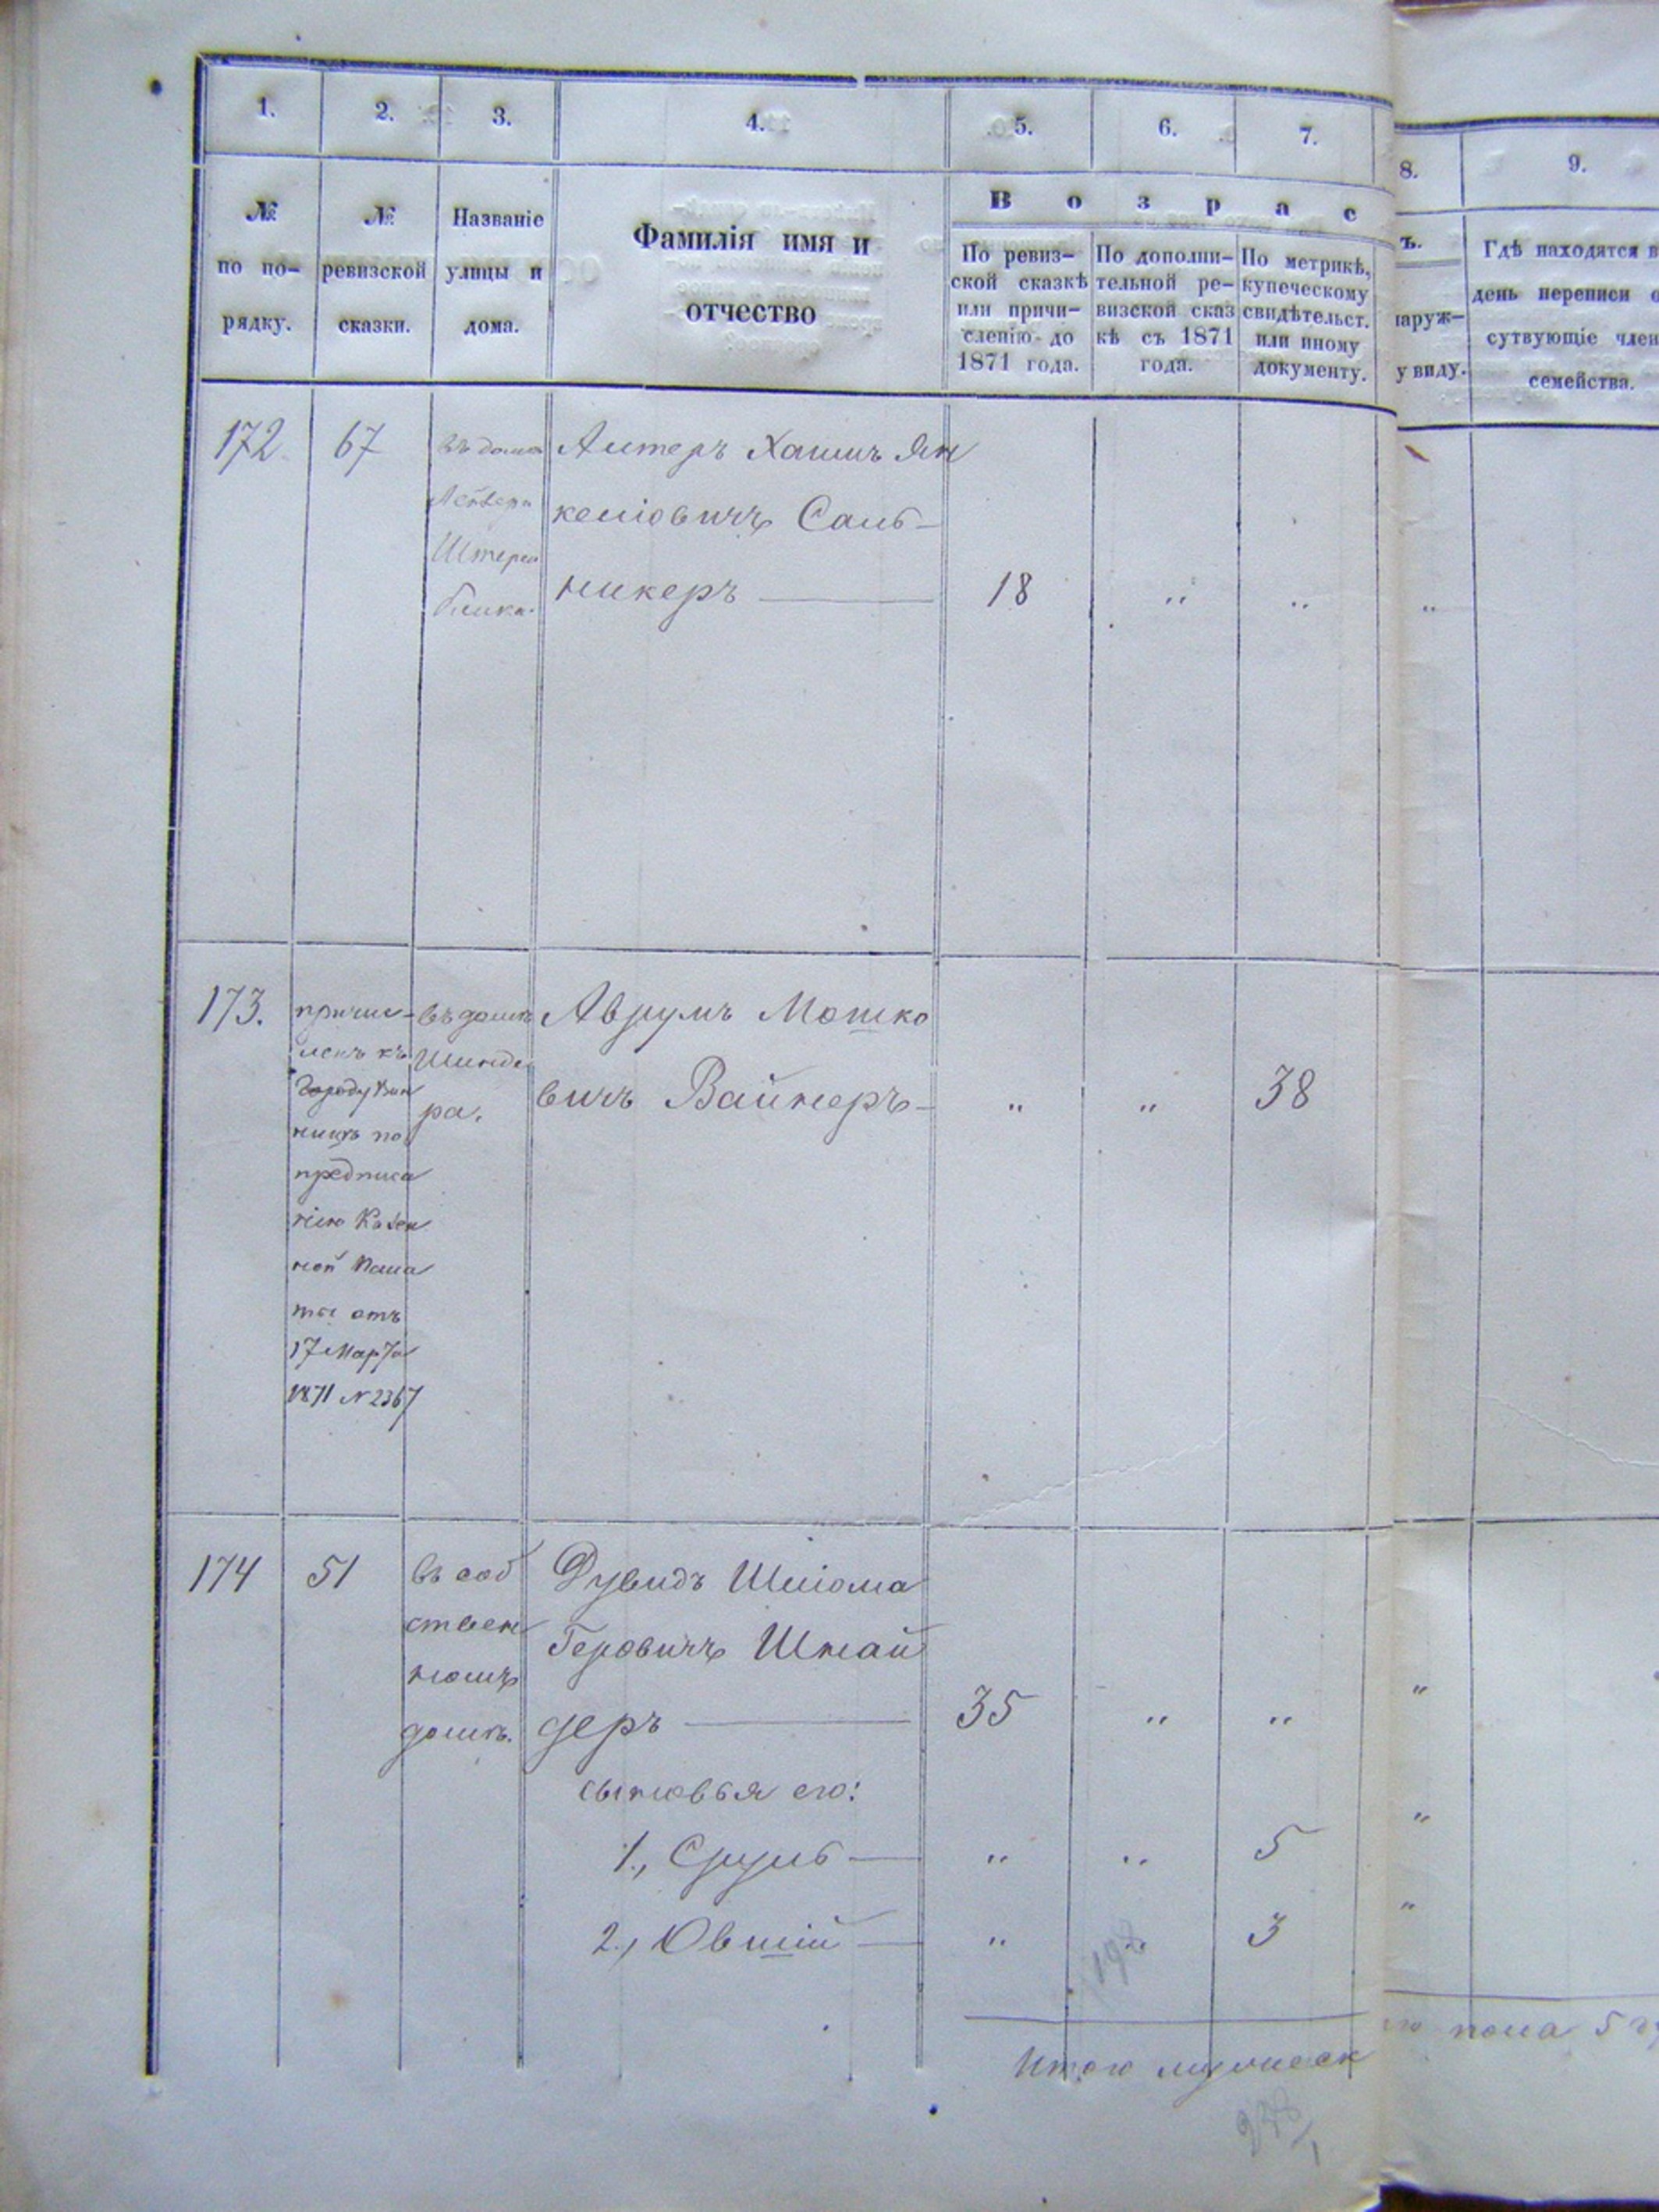 1.
2.
3.
4.
5.
6.
7.
8.
9.
№
по по-
рядку.
№
ревизской
сказки.
Названіе
улицы и
дома.
Фамилія имя и
отчество
В о з р а с
ъ.
По ревиз-
ской сказкѣ
или причи-
сленію до
1871 года.
По дополни-
тельной ре-
визской сказ
кѣ съ 1871
года.
По метрикѣ,
купеческому
свидѣтельст.
или иному
документу.
наруж-
у виду.
Гдѣ находятся в
день переписи о
сутвующіе член
семейства.
172
67
въ домѣ
Лейзера
Штерен
Алтеръ Хаимъ Ян
келіовичъ Саль-
никеръ
18 " " "
173.
причис-
ленъ къ
городу Вин
ницѣ по
предписа
нію Казен
ной Пала
ты отъ
17 Марта
1871 N 2367
въ домѣ
Шинде
ра.
Аврумъ Мошко
вичъ Вайнеръ-
" " 38
174
51
въ соб
ствен
номъ
домѣ.
Дувидъ Шліома
Геровичъ Шнай
деръ
35 " " "
сыновья его:
1., Сруль
" " 5 "
2., Овшій
" " 3 "
198
Итого мужеск
го пола 5